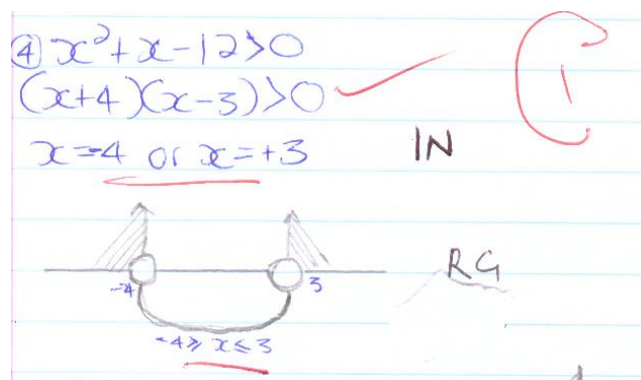 ④ x²+x-12>0
(x+4)(x-3)>0
x=-4 or x=+3
IN
1
RG
-4 3
-4≥x≤3